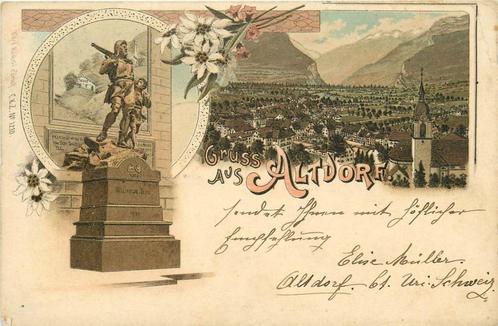 GRUSS
AUS ALTDORF.
WILHELM TELL
sendet Ihnen mit höflicher
Empfehlung
Elise Müller.
Altdorf. Ct. Uri. Schweiz.